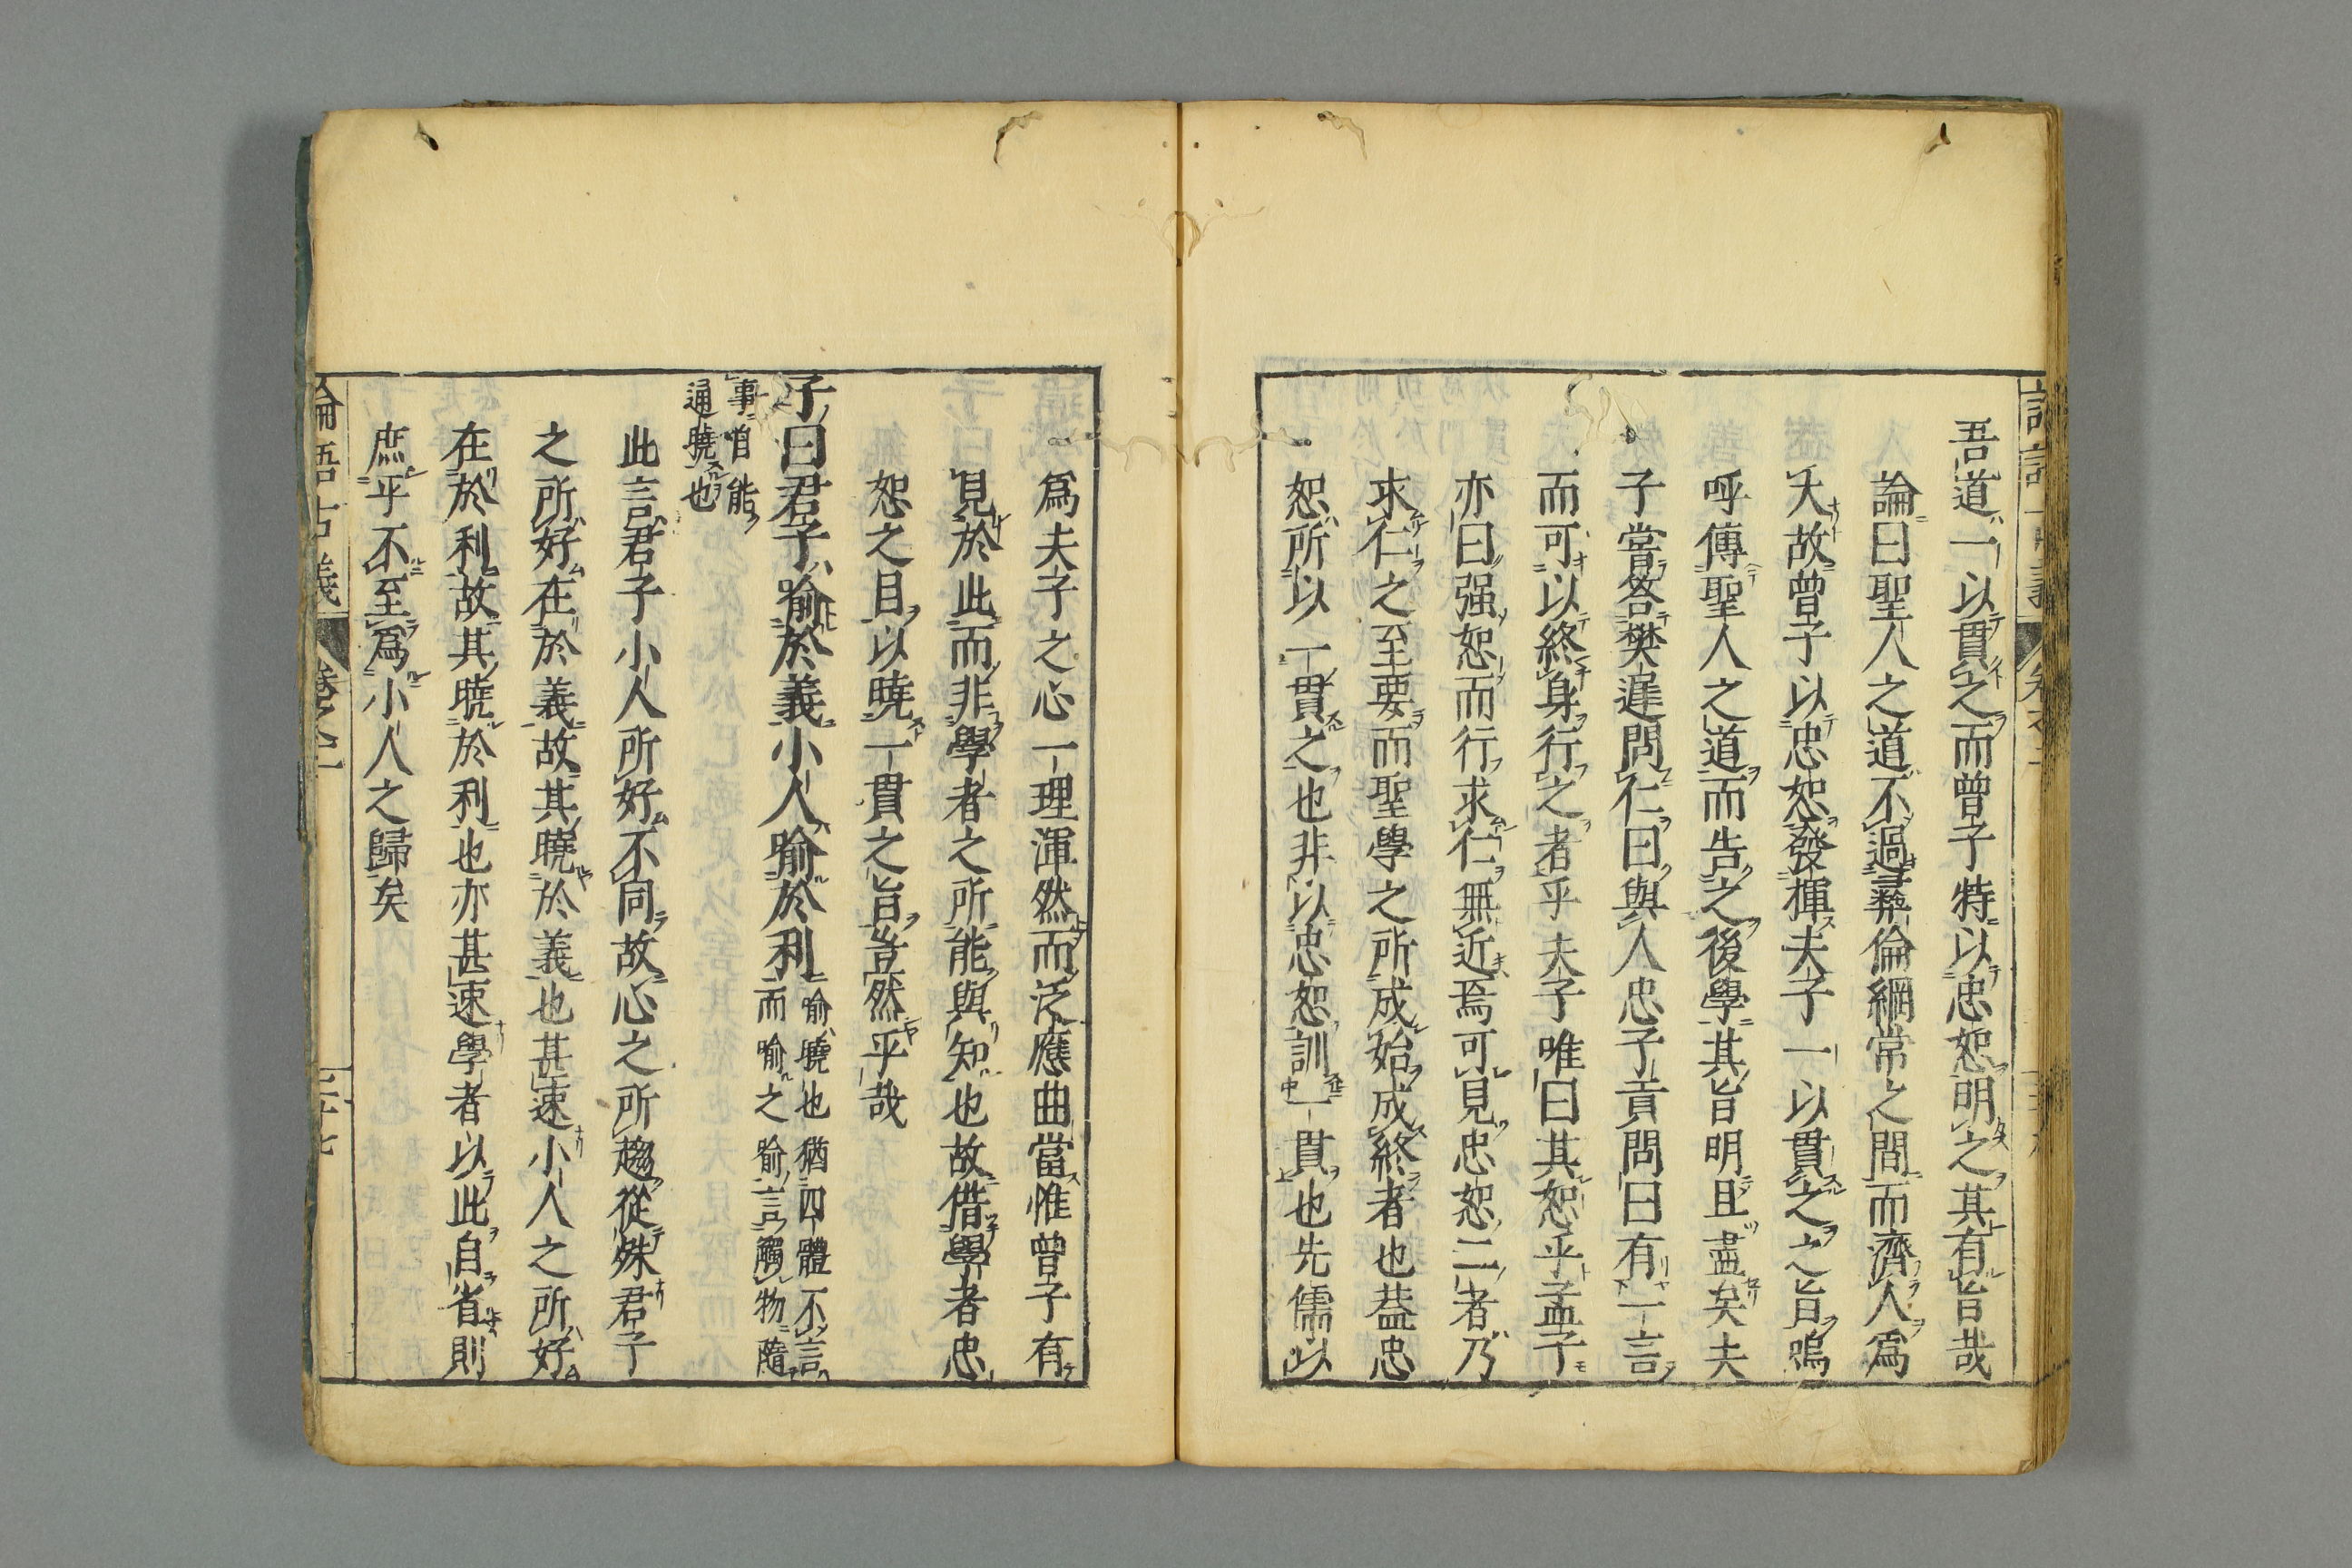 吾道一以貫之而曾子特以忠恕明之其有旨哉
論曰聖人之道不過彝倫綱常之間而濟人爲
大故曾子以忠恕發揮夫子一以貫之之旨嗚
呼傳聖人之道而告之後學其旨明且盡矣夫
子嘗答樊遲問仁曰與人忠子貢問曰有一言
而可以終身行之者乎夫子唯曰其恕乎孟子
亦曰强恕而行求仁無近焉可見忠恕二者乃
求仁之至要而聖學之所成始成終者也葢忠
恕所以一貫之也非以忠恕訓一貫也先儒以
爲夫子之心一理渾然而泛應曲當惟曾子有
見於此而非學者之所能與知也故借學者忠
恕之目以曉一貫之旨豈然乎哉
子曰君子喻於義小人喻於利
喻曉也猶四體不言
而喻之喻言觸物隨
事咱能
通曉也
此言君子小人所好不同故心之所趨從殊君子
之所好在於義故其曉於義也甚速小人之所好
在於利故其曉於利也亦甚速學者以此自省則
庶乎不至爲小人之歸矣
論語古義 卷之二